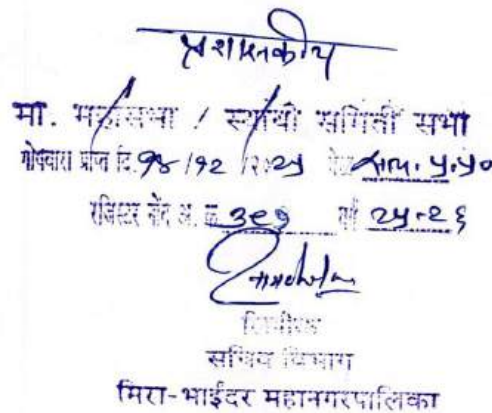 प्रशासकीय
मा. महासभा / स्थायी समिती सभा
गोषवारा प्राप्त दि. १५/१२/२०२५ वेळ सायं. ५.५०
रजिस्टर नोंद अ. क्र. ३९७ वर्ष २५-२६
लिपीक
सचिव विभाग
मिरा-भाईंदर महानगरपालिका